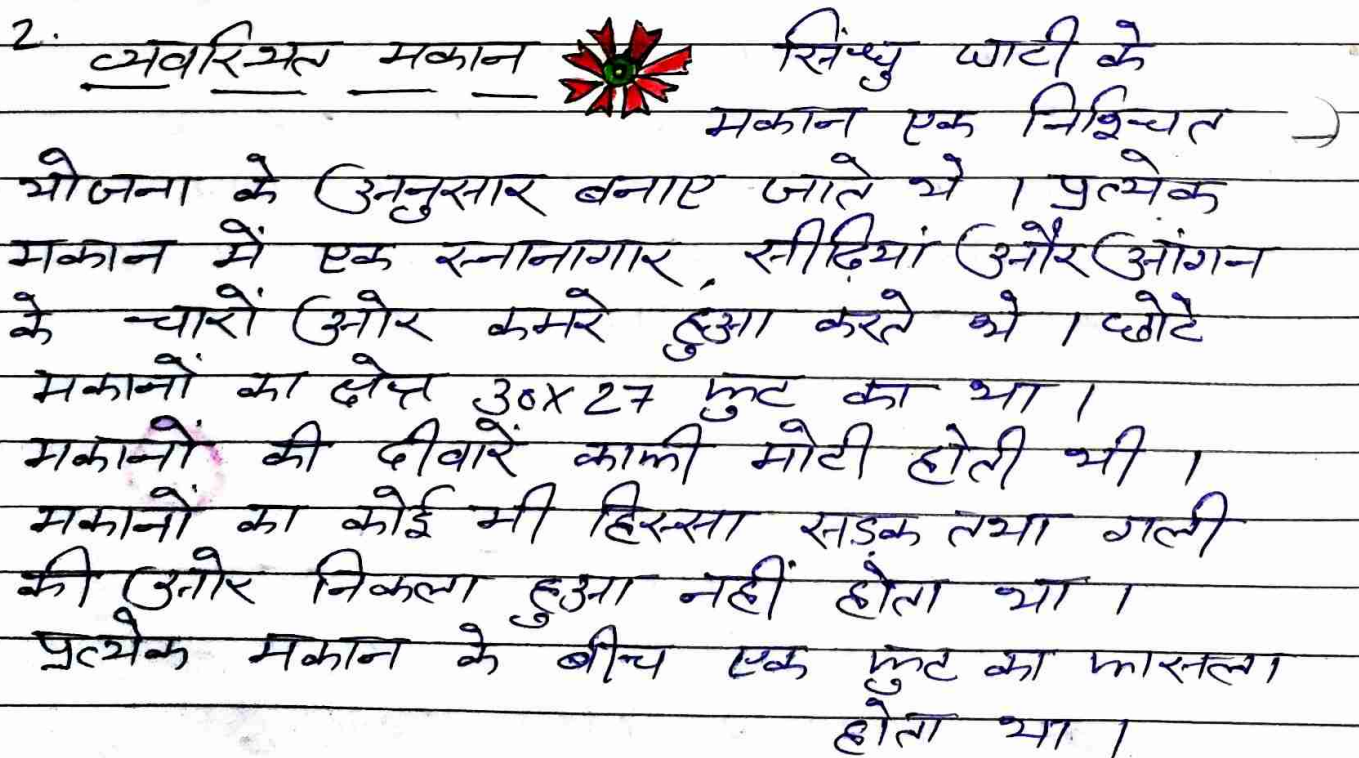 2. व्यवस्थित मकान सिंन्धु घाटी के
मकान एक निश्चित
योजना के अनुसार बनाए जाते थे । प्रत्येक
मकान में एक स्नानागार, सीढ़ियां और आंगन
के चारों ओर कमरे हुआ करते थे । छोटे
मकानों का क्षेत्र 30X27 फुट का था ।
मकानों की दीवारें काफी मोटी होती थी ।
मकानों का कोई भी हिस्सा सड़क तथा गली
की ओर निकला हुआ नहीं होता था ।
प्रत्येक मकान के बीच एक फुट का फासला
होता था ।